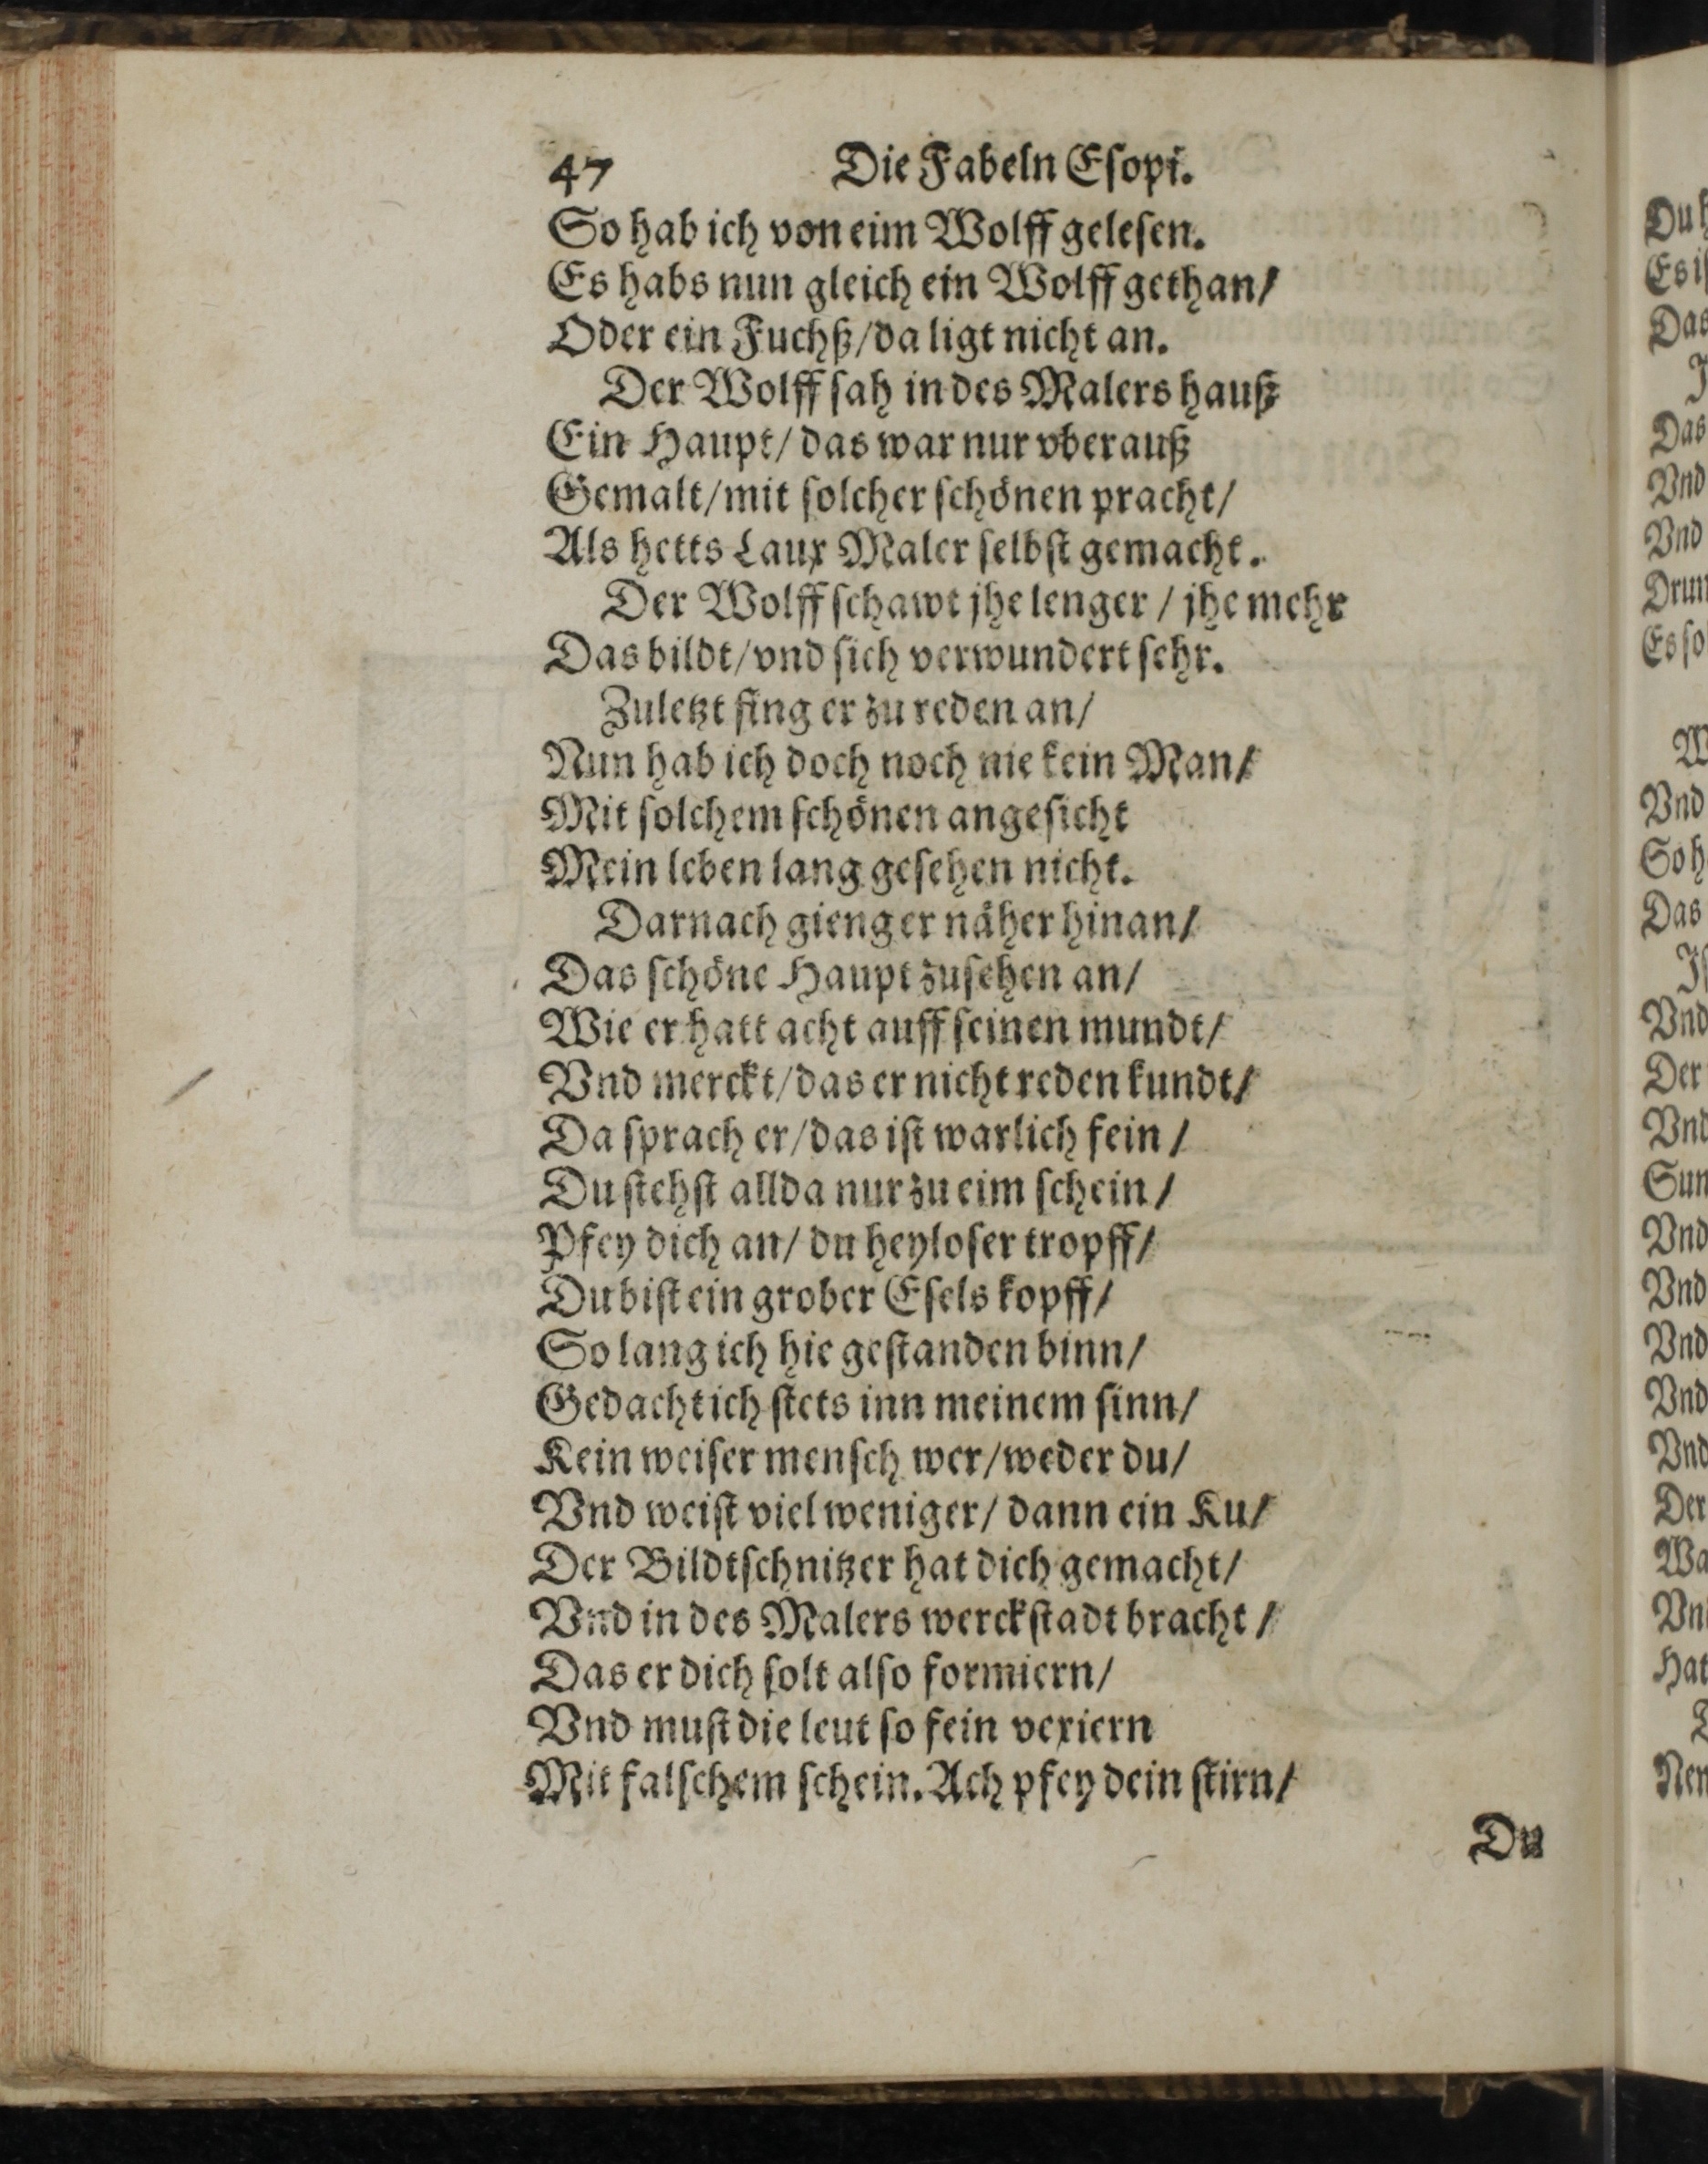 47 Die Fabeln Eſopi.
So hab ich von eim Wolff geleſen.
Es habs nun gleich ein Wolff gethan/
Oder ein Fuchß/da ligt nicht an.
Der Wolff ſah in des Malers hauß
Ein Haupt/ das war nur vberauß
Gemalt/mit ſolcher ſchönen pracht/
Als hetts Laux Maler ſelbſt gemacht.
Der Wolff ſchawt jhe lenger / jhe mehr
Das bildt/vnd ſich verwundert ſehr.
Zuletzt fing er zu reden an/
Nun hab ich doch noch nie kein Man/
Mit ſolchem ſchönen angeſicht
Mein leben lang geſehen nicht.
Darnach gieng er näher hinan/
Das ſchöne Haupt zuſehen an/
Wie er hatt acht auff ſeinen mundt/
Vnd merckt/das er nicht reden kundt/
Da ſprach er/das iſt warlich fein /
Du ſtehſt allda nur zu eim ſchein /
Pfey dich an/ du heyloſer tropff/
Du biſt ein grober Eſels kopff/
So lang ich hie geſtanden binn/
Gedacht ich ſtets inn meinem ſinn/
Kein weiſer menſch wer/weder du/
Vnd weiſt viel weniger/ dann ein Ku/
Der Bildtſchnitzer hat dich gemacht/
Vnd in des Malers werckſtadt bracht /
Das er dich ſolt alſo formiern/
Vnd muſt die leut ſo fein vexiern
Mit falſchem ſchein. Ach pfey dein ſtirn/
Du
Du
Es
Das
Das
Vnd
Vnd
Es ſo
Vnd
So h
Das
Vnd
Der
Vnd
Vnd
Vnd
Vnd
Vnd
Vnd
Der
Hat